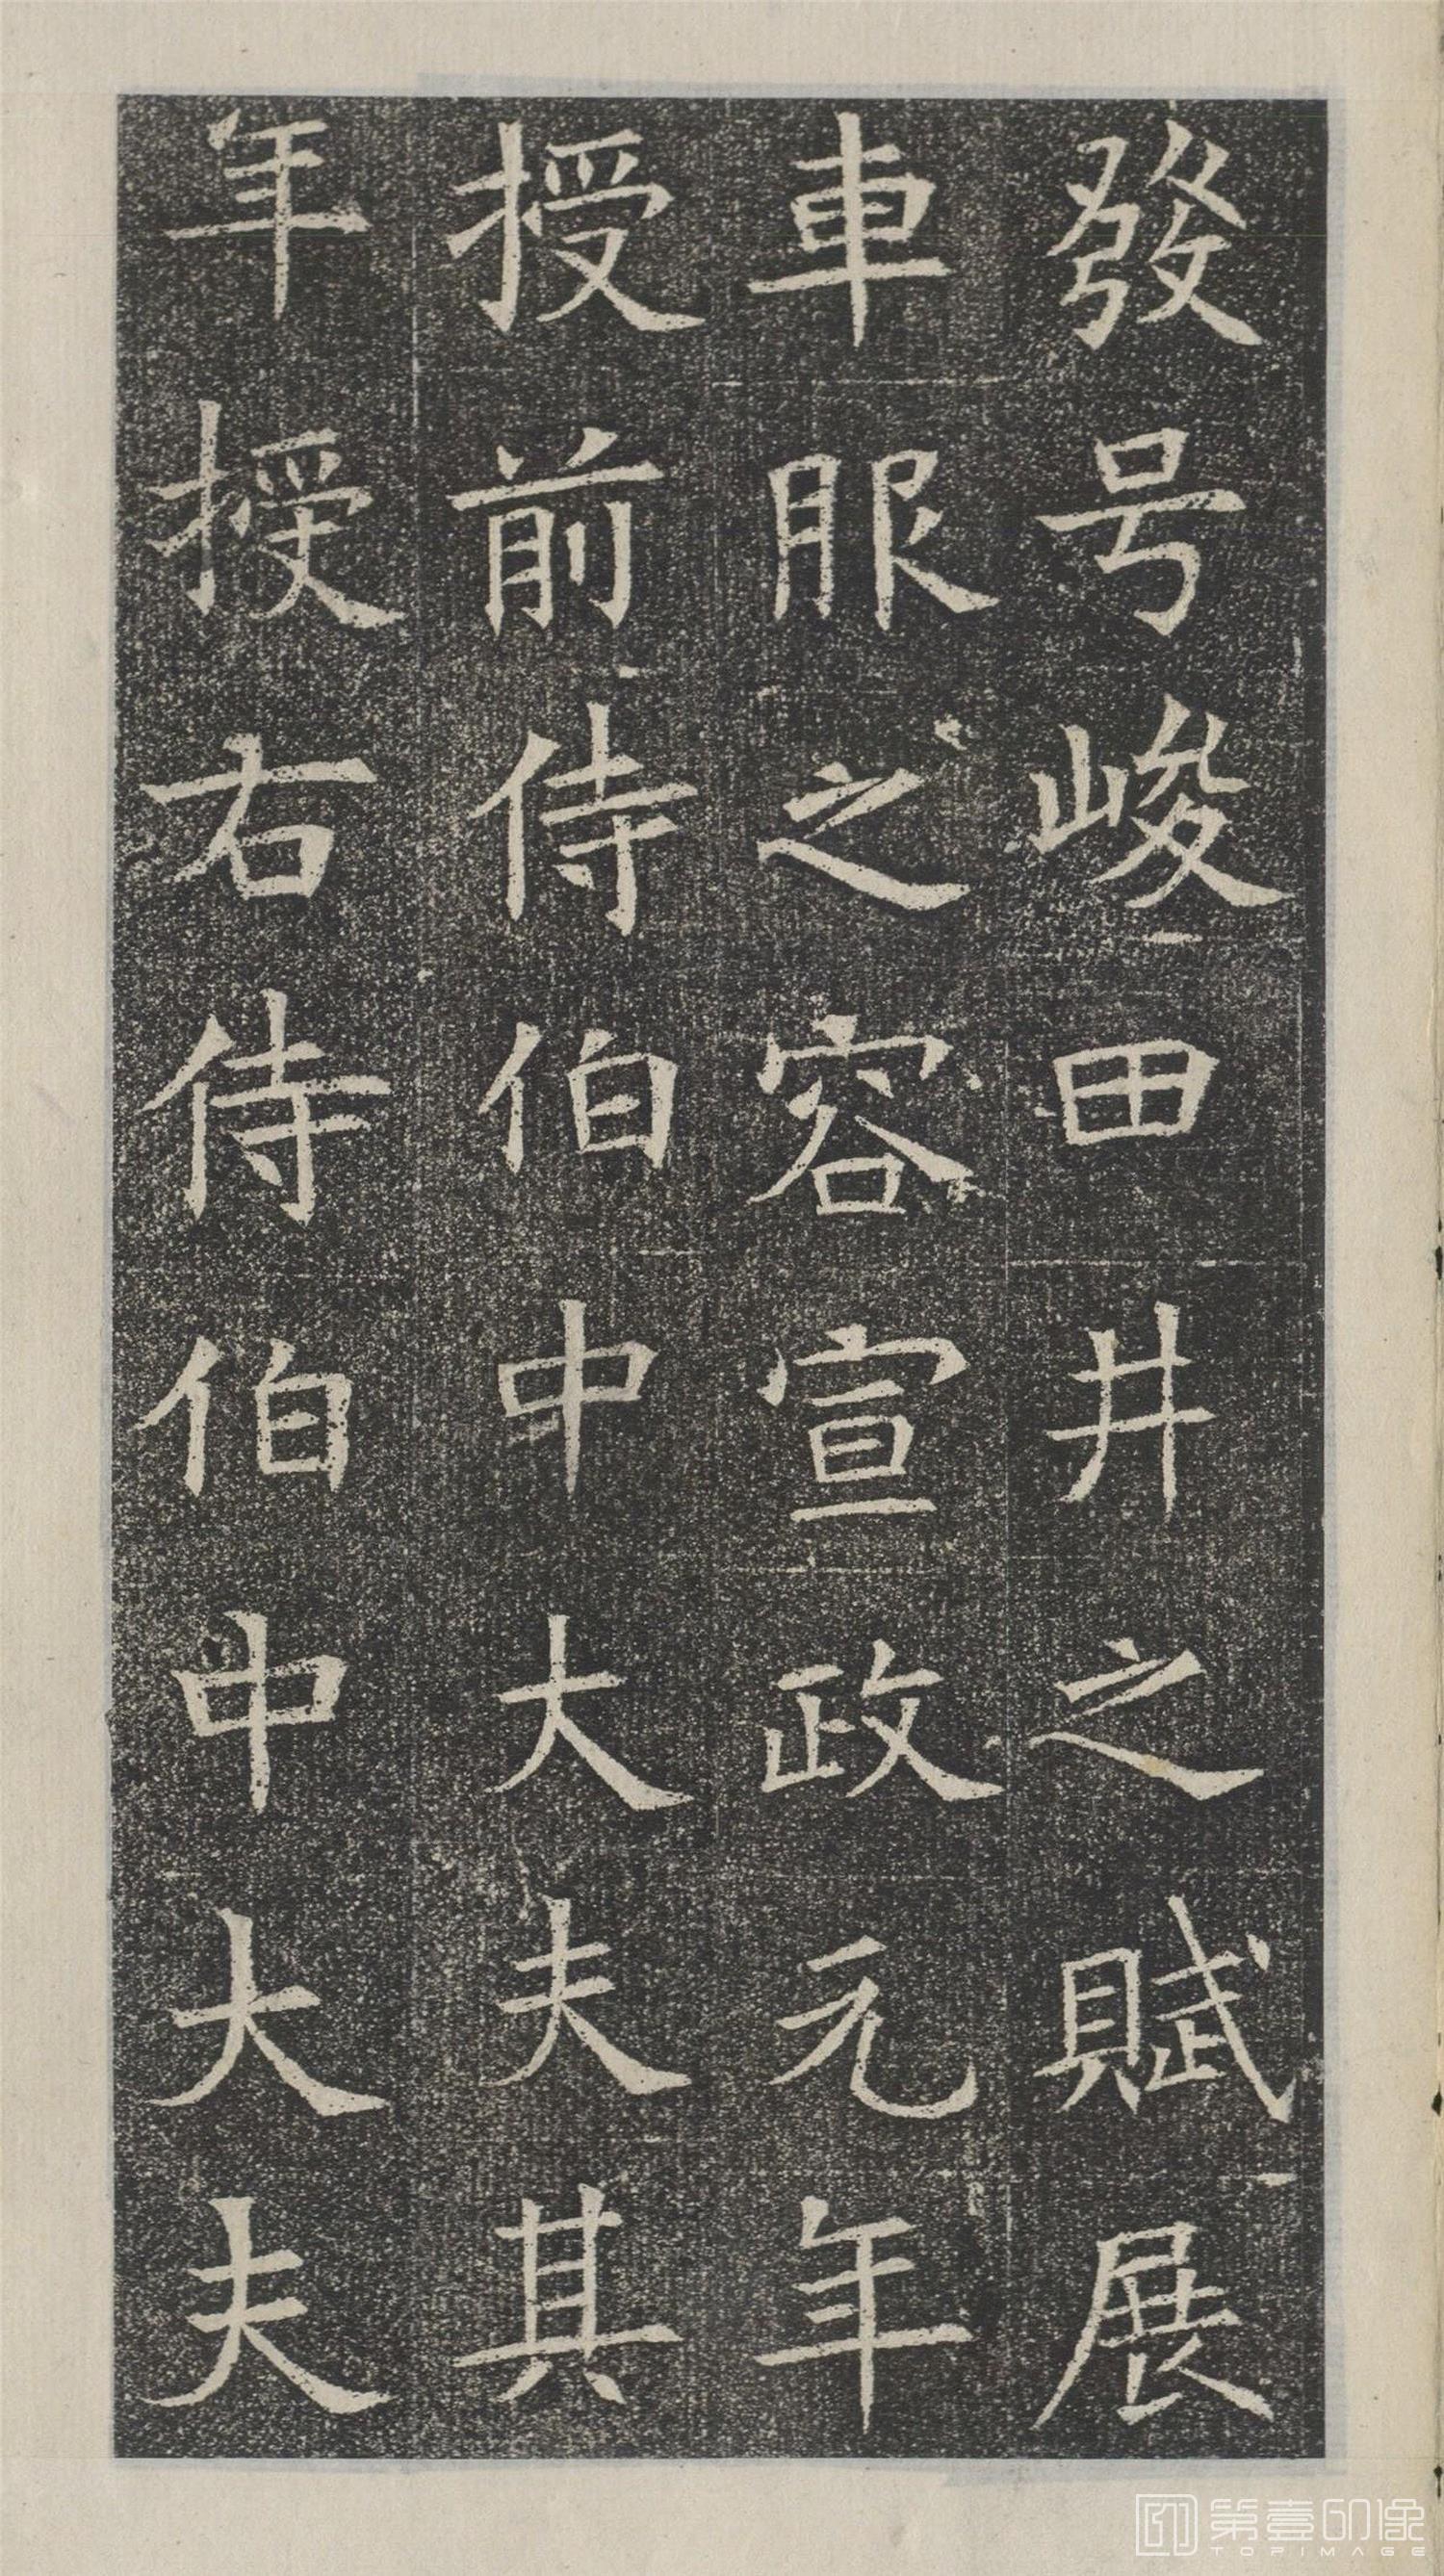 發号峻田井之賦展
車服之容宣政元年
授前侍伯中大夫其
年授右侍伯中大夫
第壹印像
TOPIMAGE